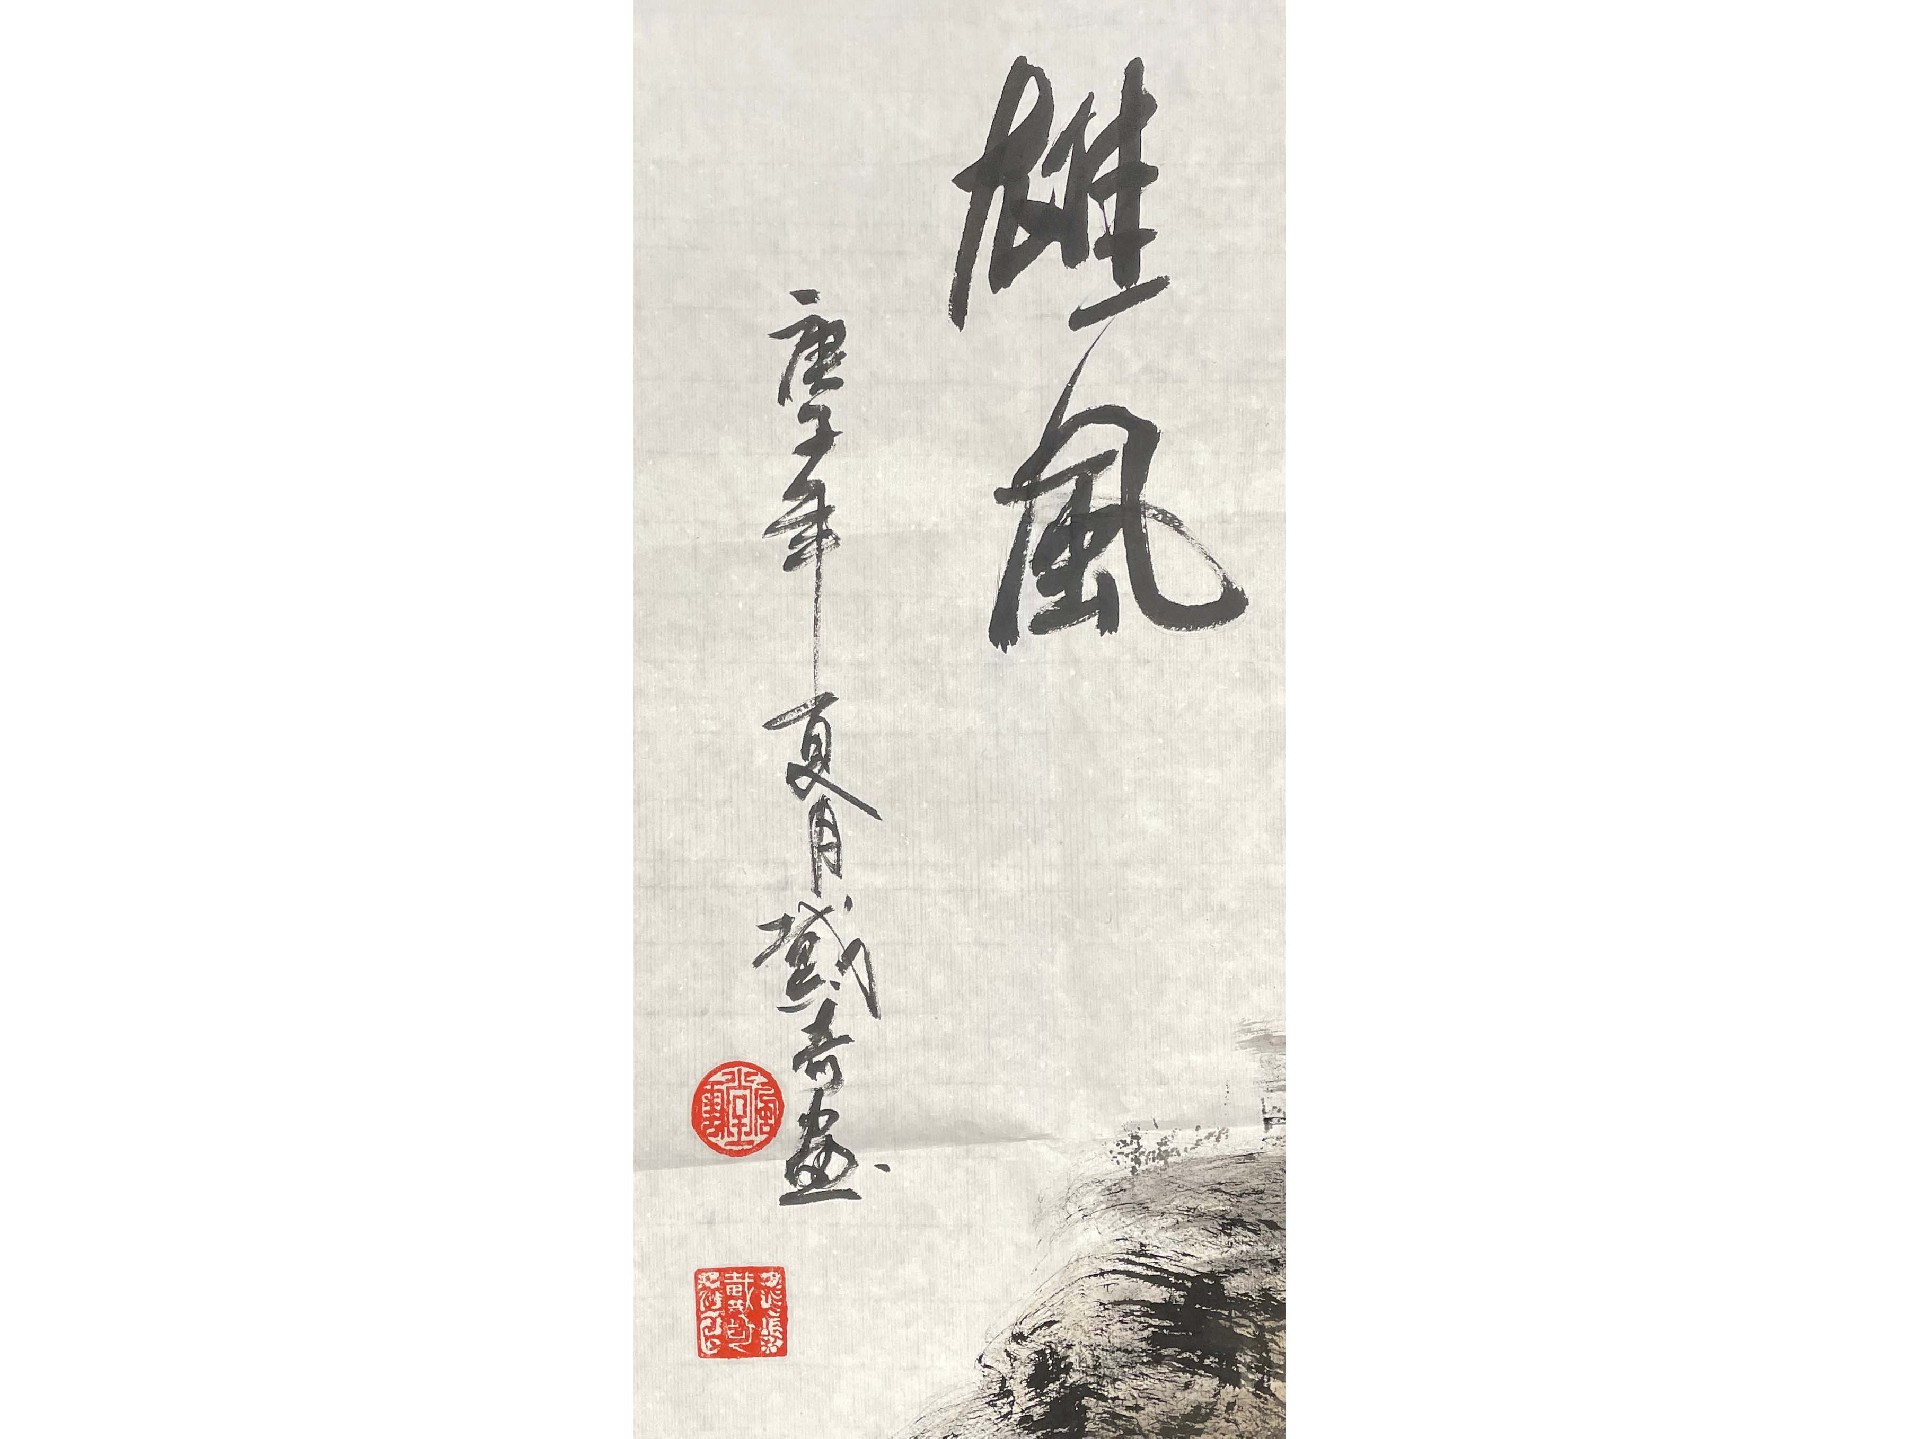 雄風
庚子年夏月戴奇畫